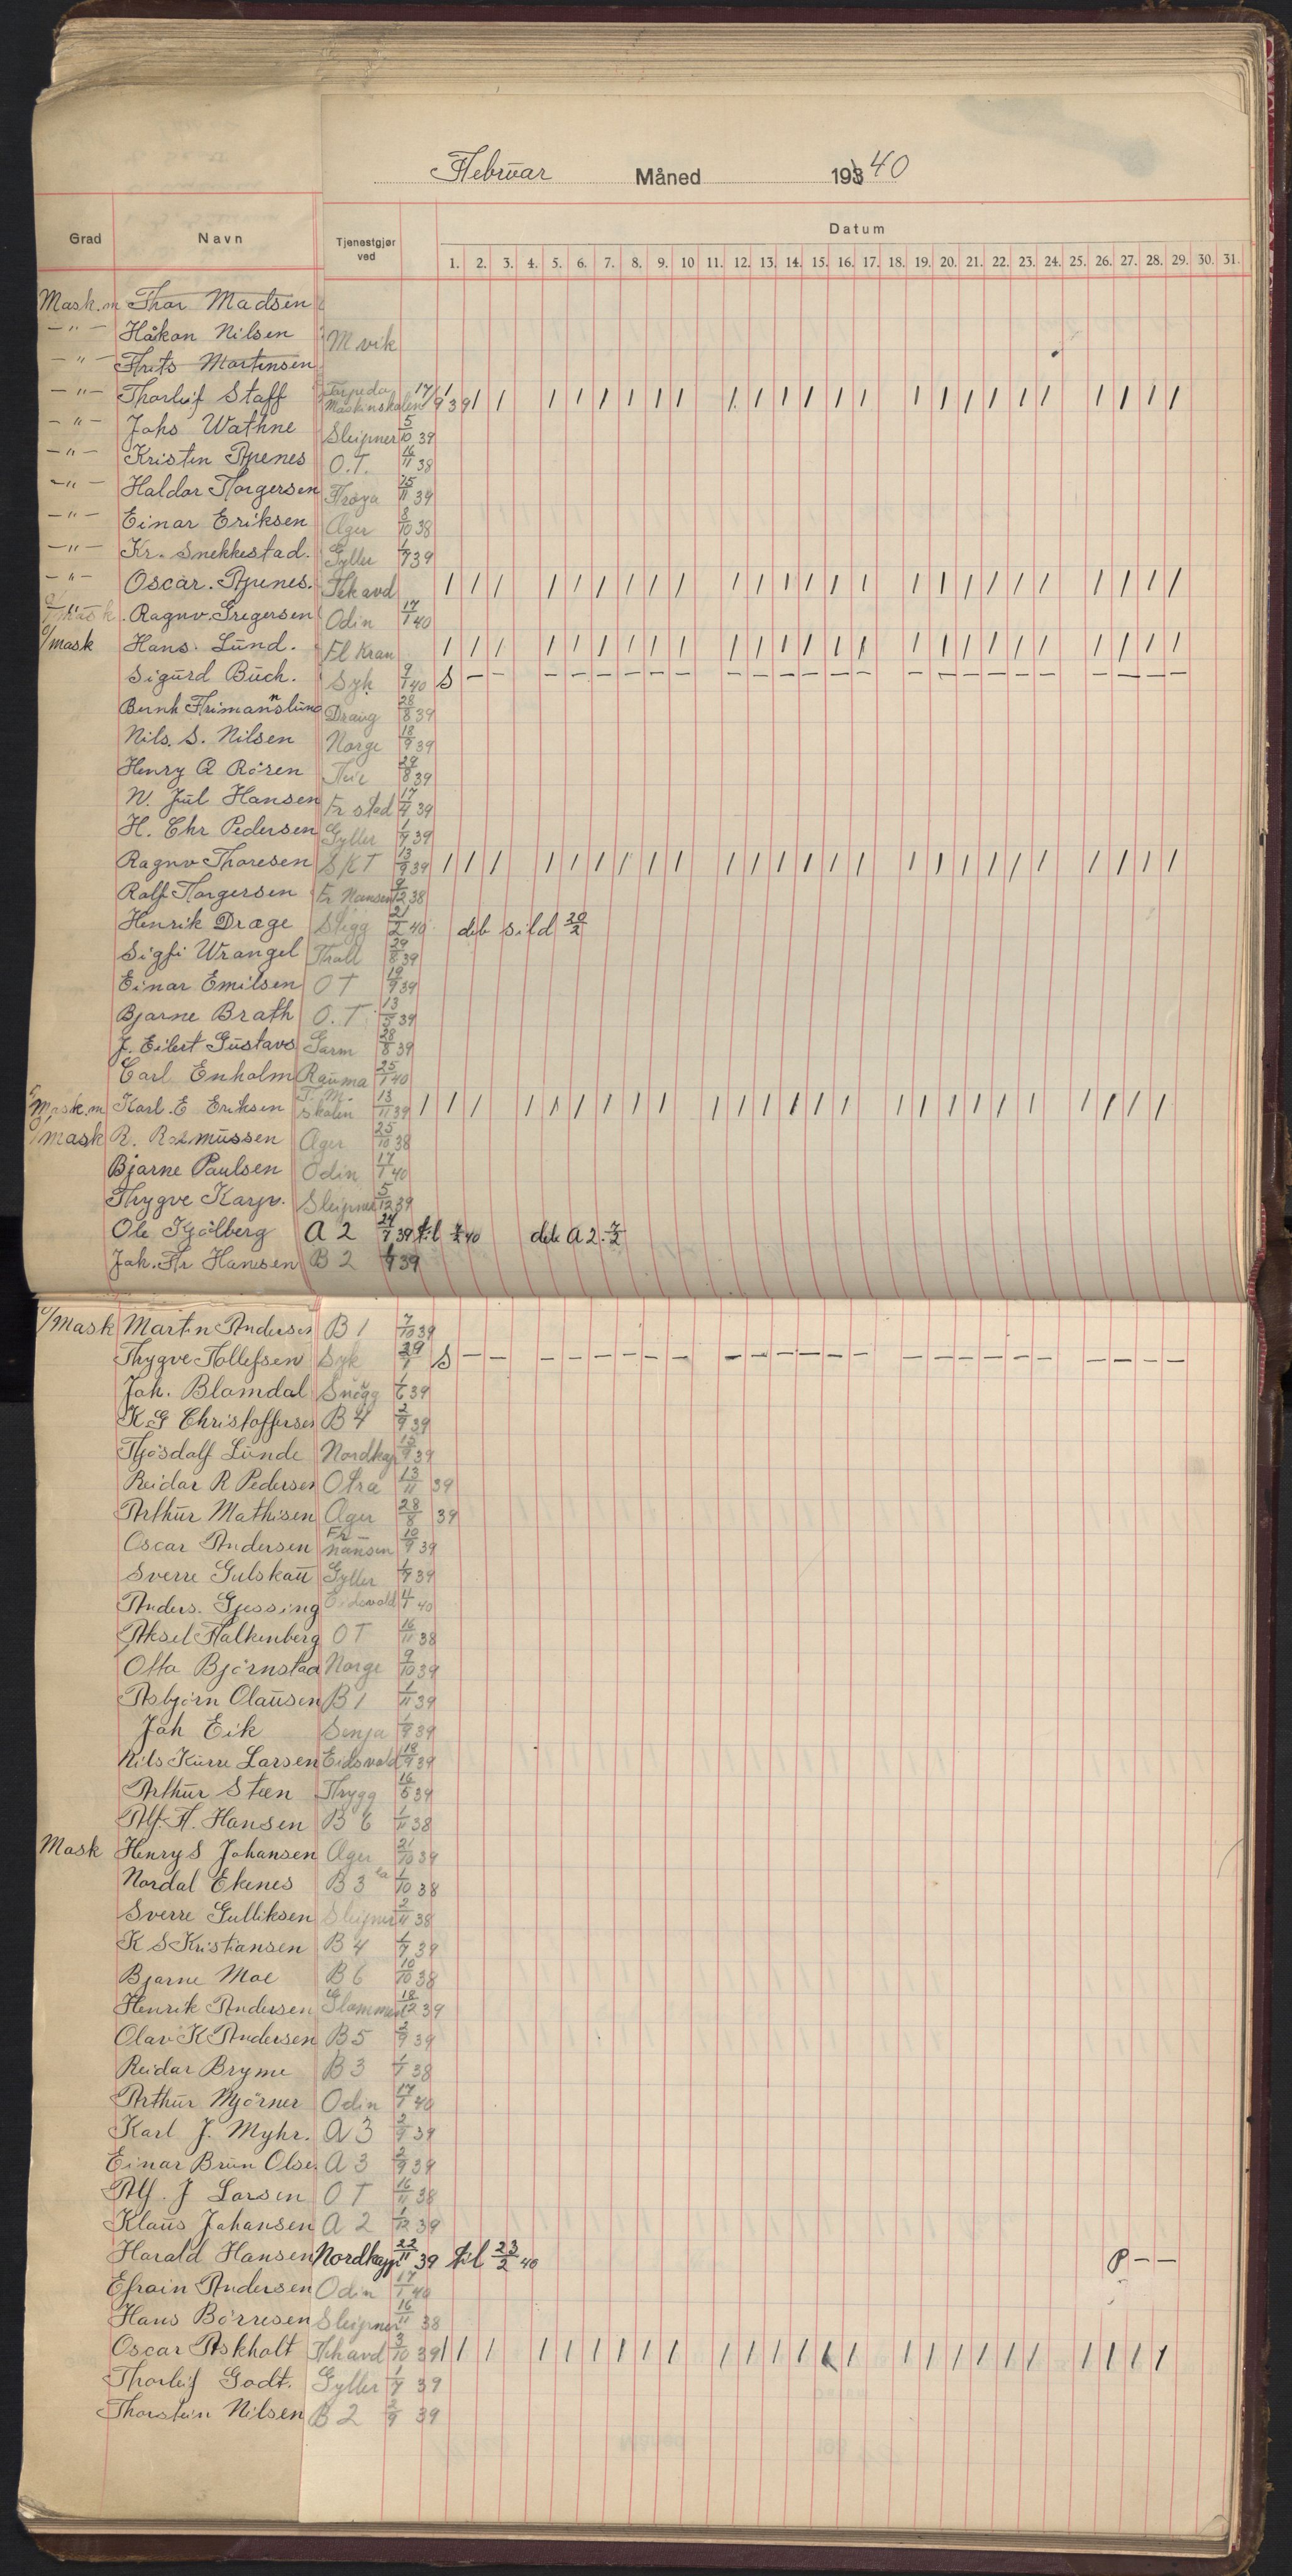 Februar Måned 193 40
Grad Navn Tjenestgjør ved Datum
1. 2. 3. 4. 5. 6. 7. 8. 9. 10 11. 12. 13. 14. 15. 16. 17. 18. 19. 20. 21. 22. 23. 24. 25. 26. 27. 28. 29. 30. 31.
Mask.m Thor Madsen
—"— Håkon Nilsen M vik
—"— Frits Martinsen
—"— Thorleif Staff Torpedo Maskinskolen 17/9 39 / / / / / / / / / / / / / / / / / / / / / / / / /
—"— Johs Wathne Sleipner 5/10 39
—"— Kristen Apenes O.T. 16/11 38
—"— Haldor Torgersen Frøya 25/11 39
—"— Einar Eriksen Æger 8/10 38
—"— Kr. Snekkestad. Gyller 1/9 39
—"— Oscar. Apenes. Tek avd / / / / / / / / / / / / / / / / / / / / / / / / / /
Ragnv. Gregersen Odin 17/1 40
U/mask Hans. Lund. El Kran / / / / / / / / / / / / / / / / / / / / / / / / / /
Sigurd Buch. Syk 9/1 40 S — — — — — — — — — — — — — — — — — — — — — — — —
Bernh Frimannslund Draug 28/8 39
Nils. S. Nilsen Norge 18/9 39
Henry A Rosen 29/8 39
N. Jul Hansen Fr stad 17/4 39
H. Chr Pedersen Gyller 1/9 39
Ragnv Thoresen S K T 13/9 39 / / / / / / / / / / / / / / / / / / / / / / / / / /
Rolf Torgersen Fr Nansen 9/12 38
Henrik Dræge 21/2 40 deb sild 20/2
Sigfi Wrangel Troll 29/8 39
Einar Emilsen O T 19/9 39
Bjarne Brath O.T. 13/5 39
J. Eilert Gustavs Garm 28/8 39
Carl Enholm Rauma 25/1 40
Mask.m Karl. E Eriksen T. M. skolen 13/11 39 / / / / / / / / / / / / / / / / / / / / / / / / / /
U/mask R. Rasmussen Æger 25/10 38
Bjarne Paulsen Odin 17/1 40
Trygve Karps. Sleipner 5/12 39
Ole Kjölberg A 2 24/7 39 til 7/2 40 deb A 2. 7/2
Joh. Fr Hansen B 2 1/9 39
U/Mask Martin Andersen B 1 7/10 39
Trygve Tollefsen Syk 29/1 S — — — — — — — — — — — — — — — — — — — — — — — —
Joh. Blomdal Snögg 1/6 39
K G Christoffersen B 4 2/9 39
Tjösdolf Lunde Nordkap 15/9 39
Reidar R Pedersen Otra 13/11 39
Arthur Mathisen Æger 28/8 39
Oscar Andersen Fr nansen 10/9 39
Sverre Gulskau Gyller 1/9 39
Anders. Gjessing Eidsvold 11/1 40
Aksel Falkenberg O T 16/11 38
Otto Björnstad Norge 9/10 39
Asbjørn Olaussen B 1 1/11 39
Joh Eik Senja 1/9 39
Nils Kurre Larsen Eidsvold 18/9 39
Arthur Steen Trygg 16/5 39
Alf. F. Hansen B 6 1/11 38
Mask Henry S Johansen Æger 21/10 39
Nordal Ekenes B 3 1/10 38
Sverre Gulliksen Sleipner 2/11 38
K S Kristiansen B 4 1/9 39
Bjarne Moe B 6 10/10 38
Henrik Andersen Glommen 18/12 39
Olav K Andersen B 5 2/9 39
Reidar Bryme B 3 1/7 38
Arthur Mjörner Odin 17/1 40
Karl J. Myhr. A 3 2/9 39
Einar Brun Olse. A 3 2/9 39
Alf. J Larsen O T 16/11 38
Klaus Johansen A 2 1/12 39
Harald Hansen Nordkapp 22/11 39 til 23/2 40 P — —
Efrain Andersen Odin 17/1 40
Hans Börresen Sleipner 16/11 38
Oscar Askholt Tek avd 3/10 39 / / / / / / / / / / / / / / / / / / / / / / / / / /
Thorleif Godt. Gyller 1/9 39
Thorstein Nilsen B 2 2/9 39